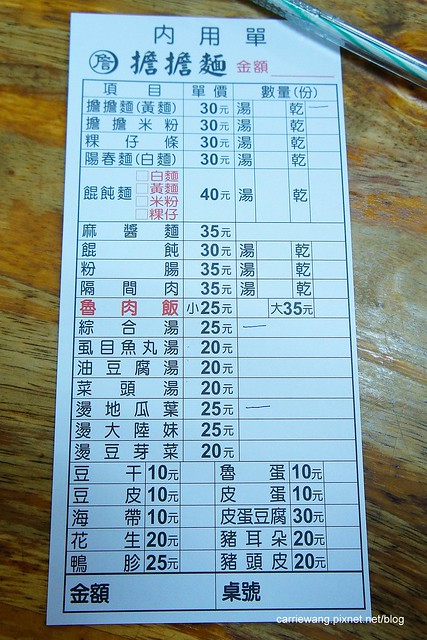 內用單
詹 擔擔麵 金額
項目 單價 數量(份)
擔擔麵(黃麵) 30元 湯 乾 一
擔擔米粉 30元 湯 乾
粿仔條 30元 湯 乾
陽春麵(白麵) 30元 湯 乾
餛飩麵 □白麵 □黃麵 □米粉 □粿仔 40元 湯 乾
麻醬麵 35元
餛飩 30元 湯 乾
粉腸 35元 湯 乾
隔間肉 35元 湯 乾
魯肉飯 小25元 大35元
綜合湯 25元 一
虱目魚丸湯 20元
油豆腐湯 20元
菜頭湯 20元
燙地瓜葉 25元 一
燙大陸妹 25元
燙豆芽菜 20元
豆干 10元 魯蛋 10元
豆皮 10元 皮蛋 10元
海帶 10元 皮蛋豆腐 30元
花生 20元 豬耳朵 20元
鴨胗 25元 豬頭皮 20元
金額 桌號
carriewang.pixnet.net/blog